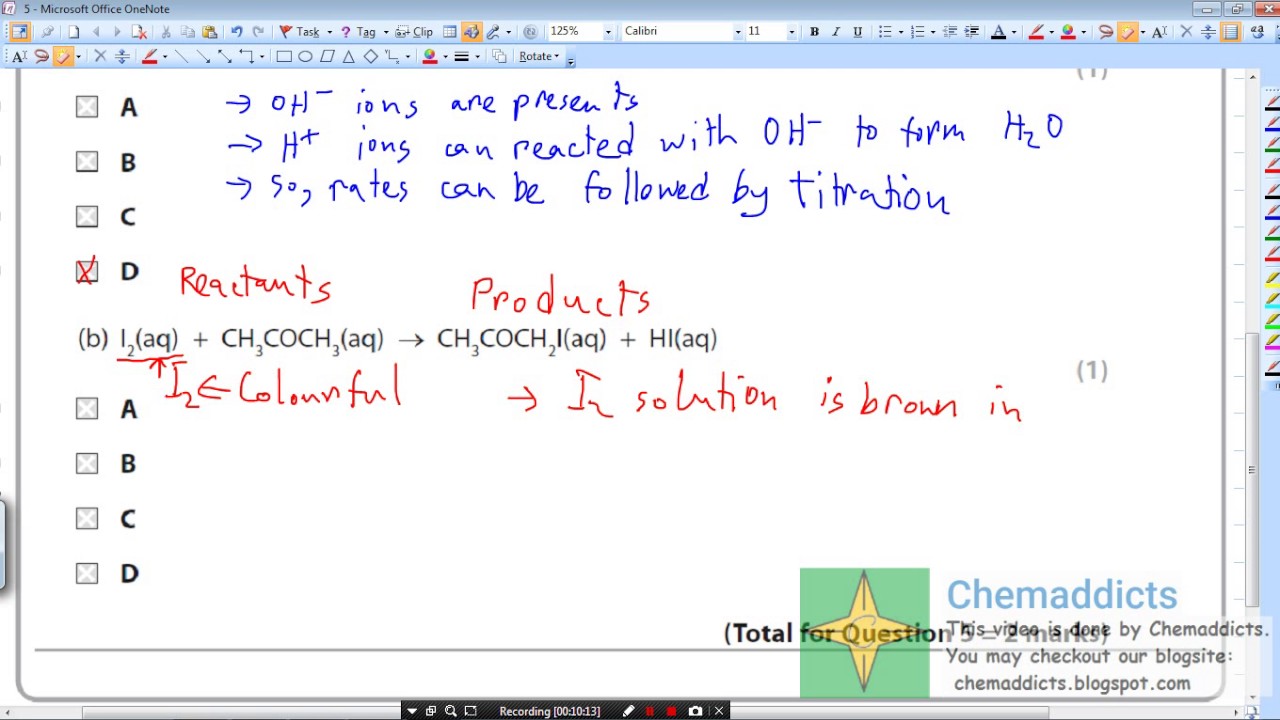 5 - Microsoft Office OneNote
Task Tag Clip 125% Calibri 11 B I U
Rotate
(1)
A → OH⁻ ions are presents
→ H⁺ ions can reacted with OH⁻ to form H₂O
B
→ so, rates can be followed by titration
C
D Reactants Products
(b) I₂(aq) + CH₃COCH₃(aq) → CH₃COCH₂I(aq) + HI(aq)
(1)
I₂ ← Colourful → I₂ solution is brown in
A
B
C
D
Chemaddicts
(Total for Question 5 = 2 marks)
This video is done by Chemaddicts.
You may checkout our blogsite:
chemaddicts.blogspot.com
Recording [00:10:13]